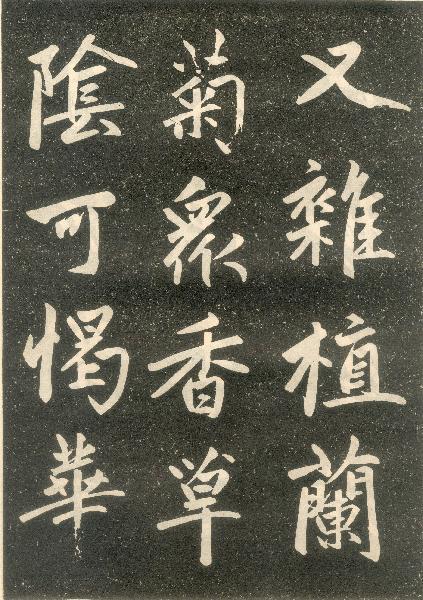 又雜植蘭
菊眾香草
陰可愒華